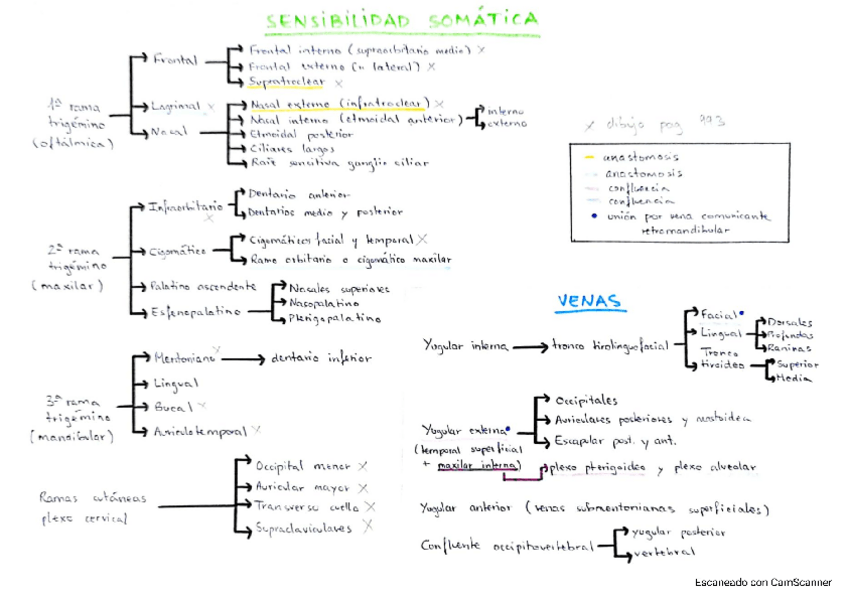 SENSIBILIDAD SOMÁTICA
1ª rama trigémino (oftálmica)
Frontal
Frontal interno (supraorbitario medio) x
Frontal externo (" lateral) x
Supratroclear x
Lagrimal x
Nasal
Nasal externo (infratroclear) x
Nasal interno (etmoidal anterior)
interno
externo
Etmoidal posterior
Ciliares largos
Raíz sensitiva ganglio ciliar
x dibujo pag 993
anastomosis
anastomosis
confluencia
confluencia
unión por vena comunicante
retromandibular
2ª rama trigémino (maxilar)
Infraorbitario x
Dentario anterior
Dentarios medio y posterior
Cigomático
Cigomáticos facial y temporal x
Ramo orbitario o cigomático maxilar
Palatino ascendente
Esfenopalatino
Nasales superiores
Nasopalatino
Pterigopalatino
3ª rama trigémino (mandibular)
Mentoniano x
dentario inferior
Lingual
Bucal x
Auriculotemporal x
Ramas cutáneas plexo cervical
Occipital menor x
Auricular mayor x
Transverso cuello x
Supraclaviculares x
VENAS
Yugular interna
tronco tirolinguofacial
Facial
Lingual
Dorsales
Profundas
Raninas
Tronco tiroideo
Superior
Media
Yugular externa
(temporal superficial
+ maxilar interna)
Occipitales
Auriculares posteriores y mastoidea
Escapular post. y ant.
plexo pterigoideo y plexo alveolar
Yugular anterior (venas submentonianas superficiales)
Confluente occipitovertebral
yugular posterior
vertebral
Escaneado con CamScanner